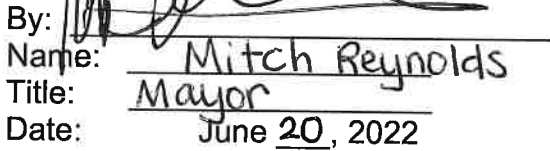 By:
Name: Mitch Reynolds
Title: Mayor
Date: June 20, 2022